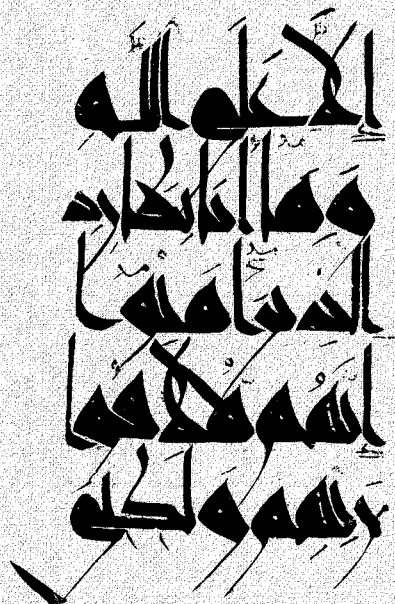 إِلَّا عَلَى اللَّهِ
وَمَا أَنَا بِطَارِدِ
الَّذِينَ آمَنُوا
إِنَّهُمْ مُلَاقُوا
رَبِّهِمْ وَلَكِنِّي